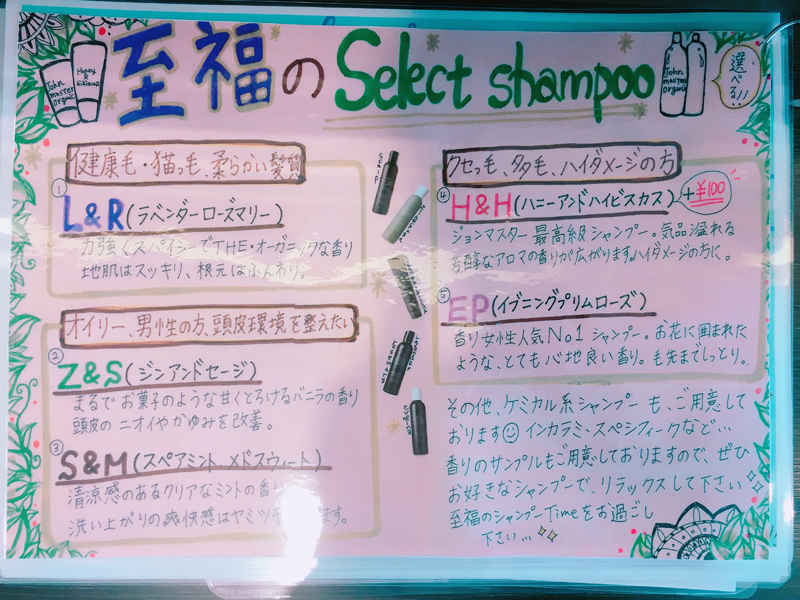 至福の Select shampoo
John master Organic
Honey & Hibiscus
John master Organic
選べる!!
健康毛・猫っ毛、柔らかい髪質
① L&R(ラベンダーローズマリー)
力強くスパイシーでTHE・オーガニックな香り
地肌はスッキリ、根元はふんわり。
オイリー、男性の方、頭皮環境を整えたい
② Z&S(ジンアンドセージ)
まるでお菓子のような甘くとろけるバニラの香り
頭皮のニオイやかゆみを改善。
③ S&M(スペアミント メドスウィート)
清涼感のあるクリアなミントの香り
洗い上がりの爽快感はヤミツキ ます。
クセっ毛、多毛、ハイダメージの方
④ H&H(ハニーアンドハイビスカス) +¥100
ジョンマスター最高級シャンプー。気品溢れる
芳醇なアロマの香りが広がります。ハイダメージの方に。
⑤ EP(イブニングプリムローズ)
香り女性人気No1シャンプー。お花に囲まれた
ような、とても心地良い香り。毛先までしっとり。
その他、ケミカル系シャンプーも、ご用意して
おります インカラミ、スペシフィークなど…
香りのサンプルもご用意しておりますので、ぜひ
お好きなシャンプーで、リラックスして下さい
至福のシャンプーTimeをお過ごし
下さい…